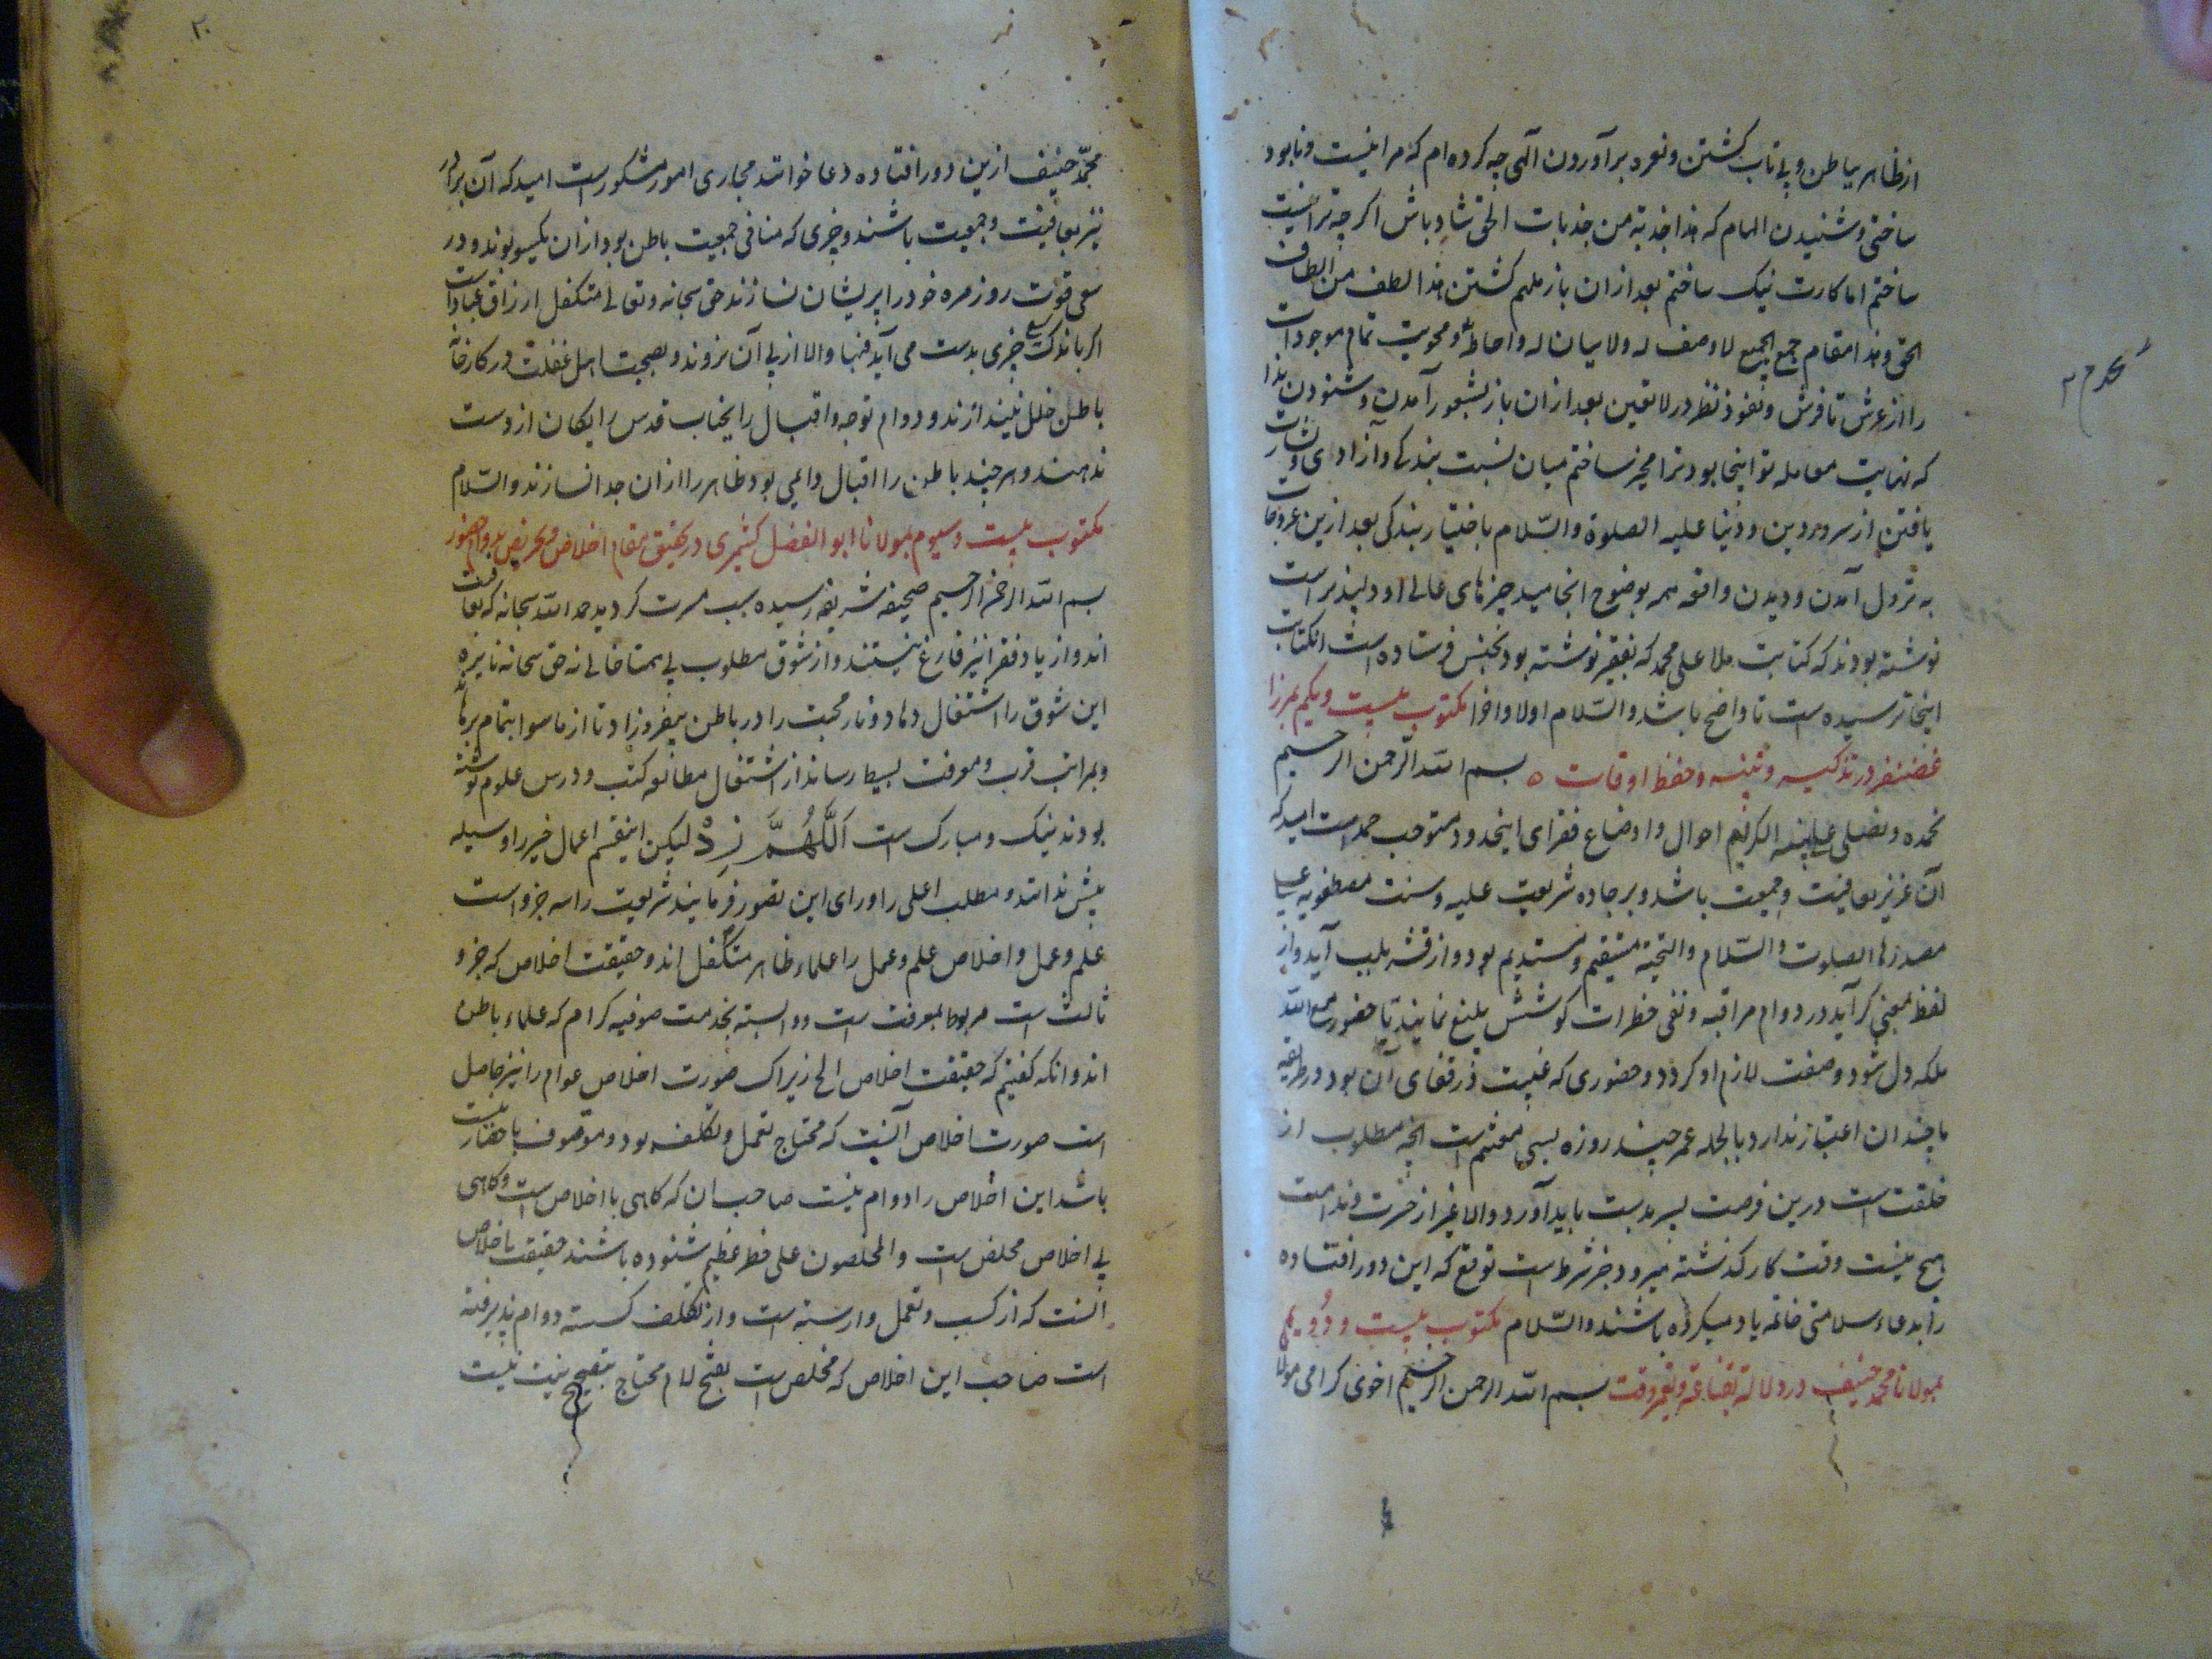 از ظاهر بباطن و بی تاب کشتن و نعره برآوردن الهی چه کرده ام که مرا نیست و نابود
ساختی و شنیدن الهام که هذا جذبة من جذبات الحق شاد باش اکرچه ترا نیست
ساختم اما کارت نیک ساختم بعد ازان باز ملهم کشتن هذا لطف من الطاف
الحق و هذا مقام جمع الجمع لا وصف له ولا بیان له و احاطه و محویت تمام موجودات
را از عرش تا فرش و نفوذ نظر در لا تعین بعد ازان باز بشعور آمدن و شنودن ندا
که نهایت معامله تو اینجا بود ترا مخیر ساختم میان نسبت بندکی و آزادی و بشارت
یافتن از سرور دین و دنیا علیه الصلوة والسلام باختیار بندکی بعد ازین عروجات
به نزول آمدن و دیدن واقعه همه بوضوح انجامید چیزهای عالی و دلپذیر است
نوشته بودند که کتابت ملا علی محمد که بفقیر نوشته بود بجنس فرستاده است آن کتابت
اینجا نرسیده است تا واضح باشد والسلام اولا و آخرا مکتوب بیست و یکم بمرزا
غضنفر در تذکیه و تنبیه و حفظ اوقات ه بسم الله الرحمن الرحیم
نحمده و نصلی علی نبیه الکریم احوال و اوضاع فقرای اینحدود مستوجب حمد است امید که
آن عزیز بعافیت و جمعیت باشد و بر جاده شریعت علیه و سنت مصطفویه علی
مصدرها الصلوت والسلام والتحیة مستقیم و مستدیم بود و از قشر بلب آید و از
لفظ بمعنی کراید در دوام مراقبه و نفی خطرات کوشش بلیغ نمایند تا حضور مع الله
ملکه دل شود و صفت لازم او کردد و حضوری که غیبت در قفای آن بود در طریقه
ما چندان اعتبار ندارد بالجمله عمر چند روزه بسی مغتنم است آنچه مطلوب از
خلقت است درین فرصت یسیر بدست باید آورد و الا غیر از حسرت و ندامت
هیچ نیست وقت کار کذشته میرود خبر شرط است توقع که این دور افتاده
را بدعاء سلامتی خاتمه یاد میکرده باشند والسلام مکتوب بیست و دویم
بمولانا محمد حنیف در دلالة بقناعة و تعمیر وقت بسم الله الرحمن الرحیم اخوی کرامی مولانا
محمد حنیف ازین دور افتاده دعا خوانند مجاری امور مشکور است امید که آن برادر
نیز بعافیت و جمعیت باشند و چیزی که منافی جمعیت باطن بود ازان یکسو بوند و در
سعی قوت روزمره خود را پریشان نسازند حق سبحانه و تعالی متکفل ارزاق عباد است
اکر باندک سعی چیزی بدست می آید فبها و الا از پی آن نروند و بصحبت اهل غفلت در کارخانه
باطن خلل نیندازند و دوام توجه و اقبال را بجناب قدس رایکان از دست
ندهند و هرچند باطن را اقبال دایمی بود ظاهر را ازان جدا نسازند والسلام
مکتوب بیست و سیوم بمولانا ابو الفضل کشمیری در تحقیق مقام اخلاص و تحریض بدوام حضور
بسم الله الرحمن الرحیم صحیفه شریفه رسیده سبب مسرت کردید حمد الله سبحانه که بعافیت
اند و از یاد فقرا نیز فارغ نیستند و از شوق مطلوب بی همتا خالی نه حق سبحانه نایره
این شوق را اشتعال دهاد و نار محبت را در باطن بیفروزاد تا از ماسوا بتمام برهاند
و بمراتب قرب و معرفت بسیط رساند از اشتغال مطالعه کتب و درس علوم نوشته
بودند نیک و مبارک است اَللّٰهُمَّ زِدْ لیکن اینقسم اعمال خیر را وسیله
بیش ندانند و مطلب اعلی را ورای این تصور فرمایند شریعت را سه جزو است
علم و عمل و اخلاص علم و عمل را علماء ظاهر متکفل اند و حقیقت اخلاص که جزو
ثالث است مربوط بمعرفت است و وابسته بخدمت صوفیه کرام که علماء باطن
اند و آنکه کفتیم که حقیقت اخلاص الخ زیراکه صورت اخلاص عوام را نیز حاصل
است صورت اخلاص آنست که محتاج تعمل و تکلف بود و موقوف باحضار نیت
باشد این اخلاص را دوام نیست صاحب ان که کاهی با اخلاص است و کاهی
بی اخلاص مخلص است والمخلصون علی خطر عظیم شنوده باشند حقیقت اخلاص
آنست که از کسب و تعمل وارسته است و از تکلف کسسته دوام پذیرفته
است صاحب این اخلاص که مخلص است بفتح لام محتاج بتصحیح نیت نیست